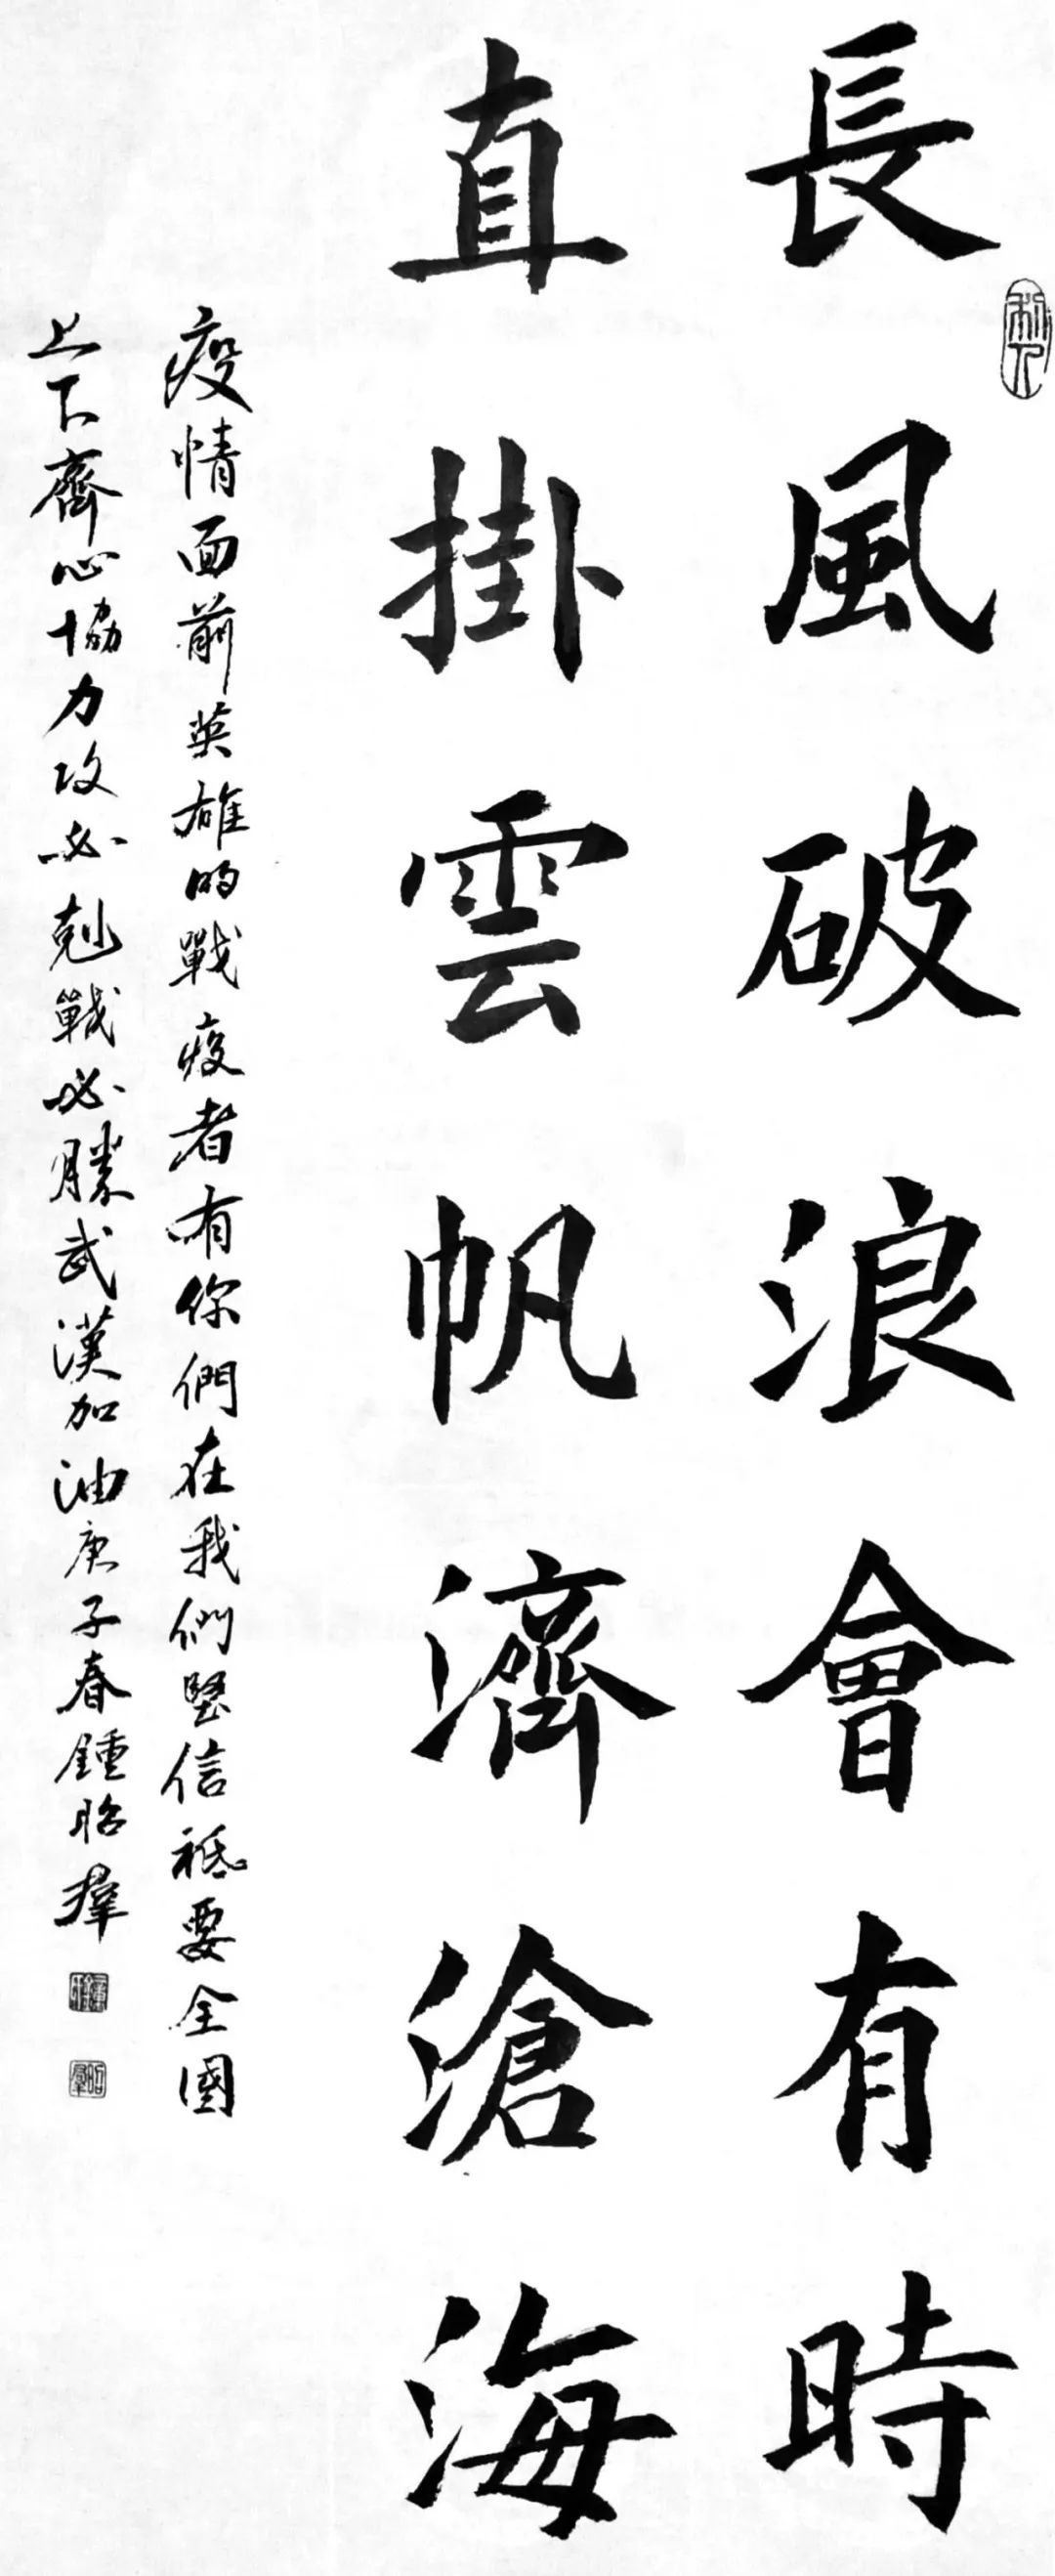 長風破浪會有時
直掛雲帆濟滄海
疫情面前英雄的戰疫者有你們在我們堅信祗要全國
上下齊心協力攻必剋戰必勝武漢加油庚子春鍾昭群